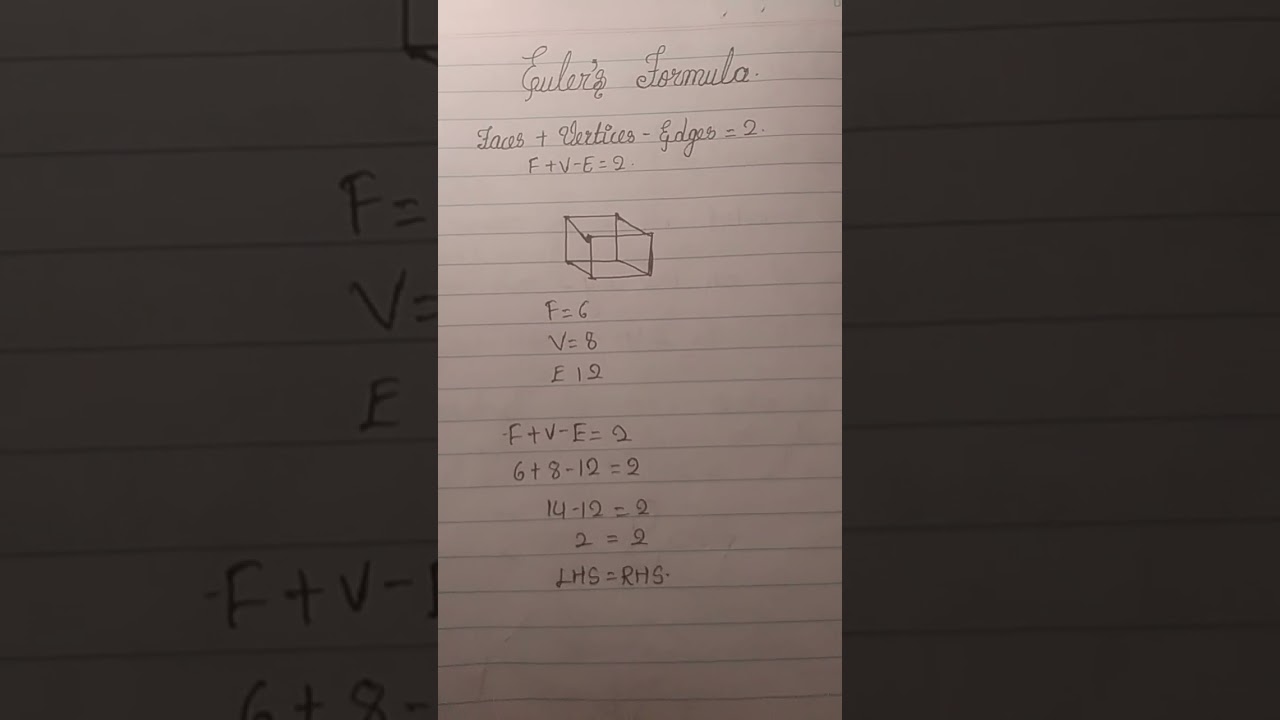 Euler's Formula.
Faces + Vertices - Edges = 2.
F + V - E = 2.
F = 6
V = 8
E 12
F + V - E = 2
6 + 8 - 12 = 2
14 - 12 = 2
2 = 2
LHS = RHS.